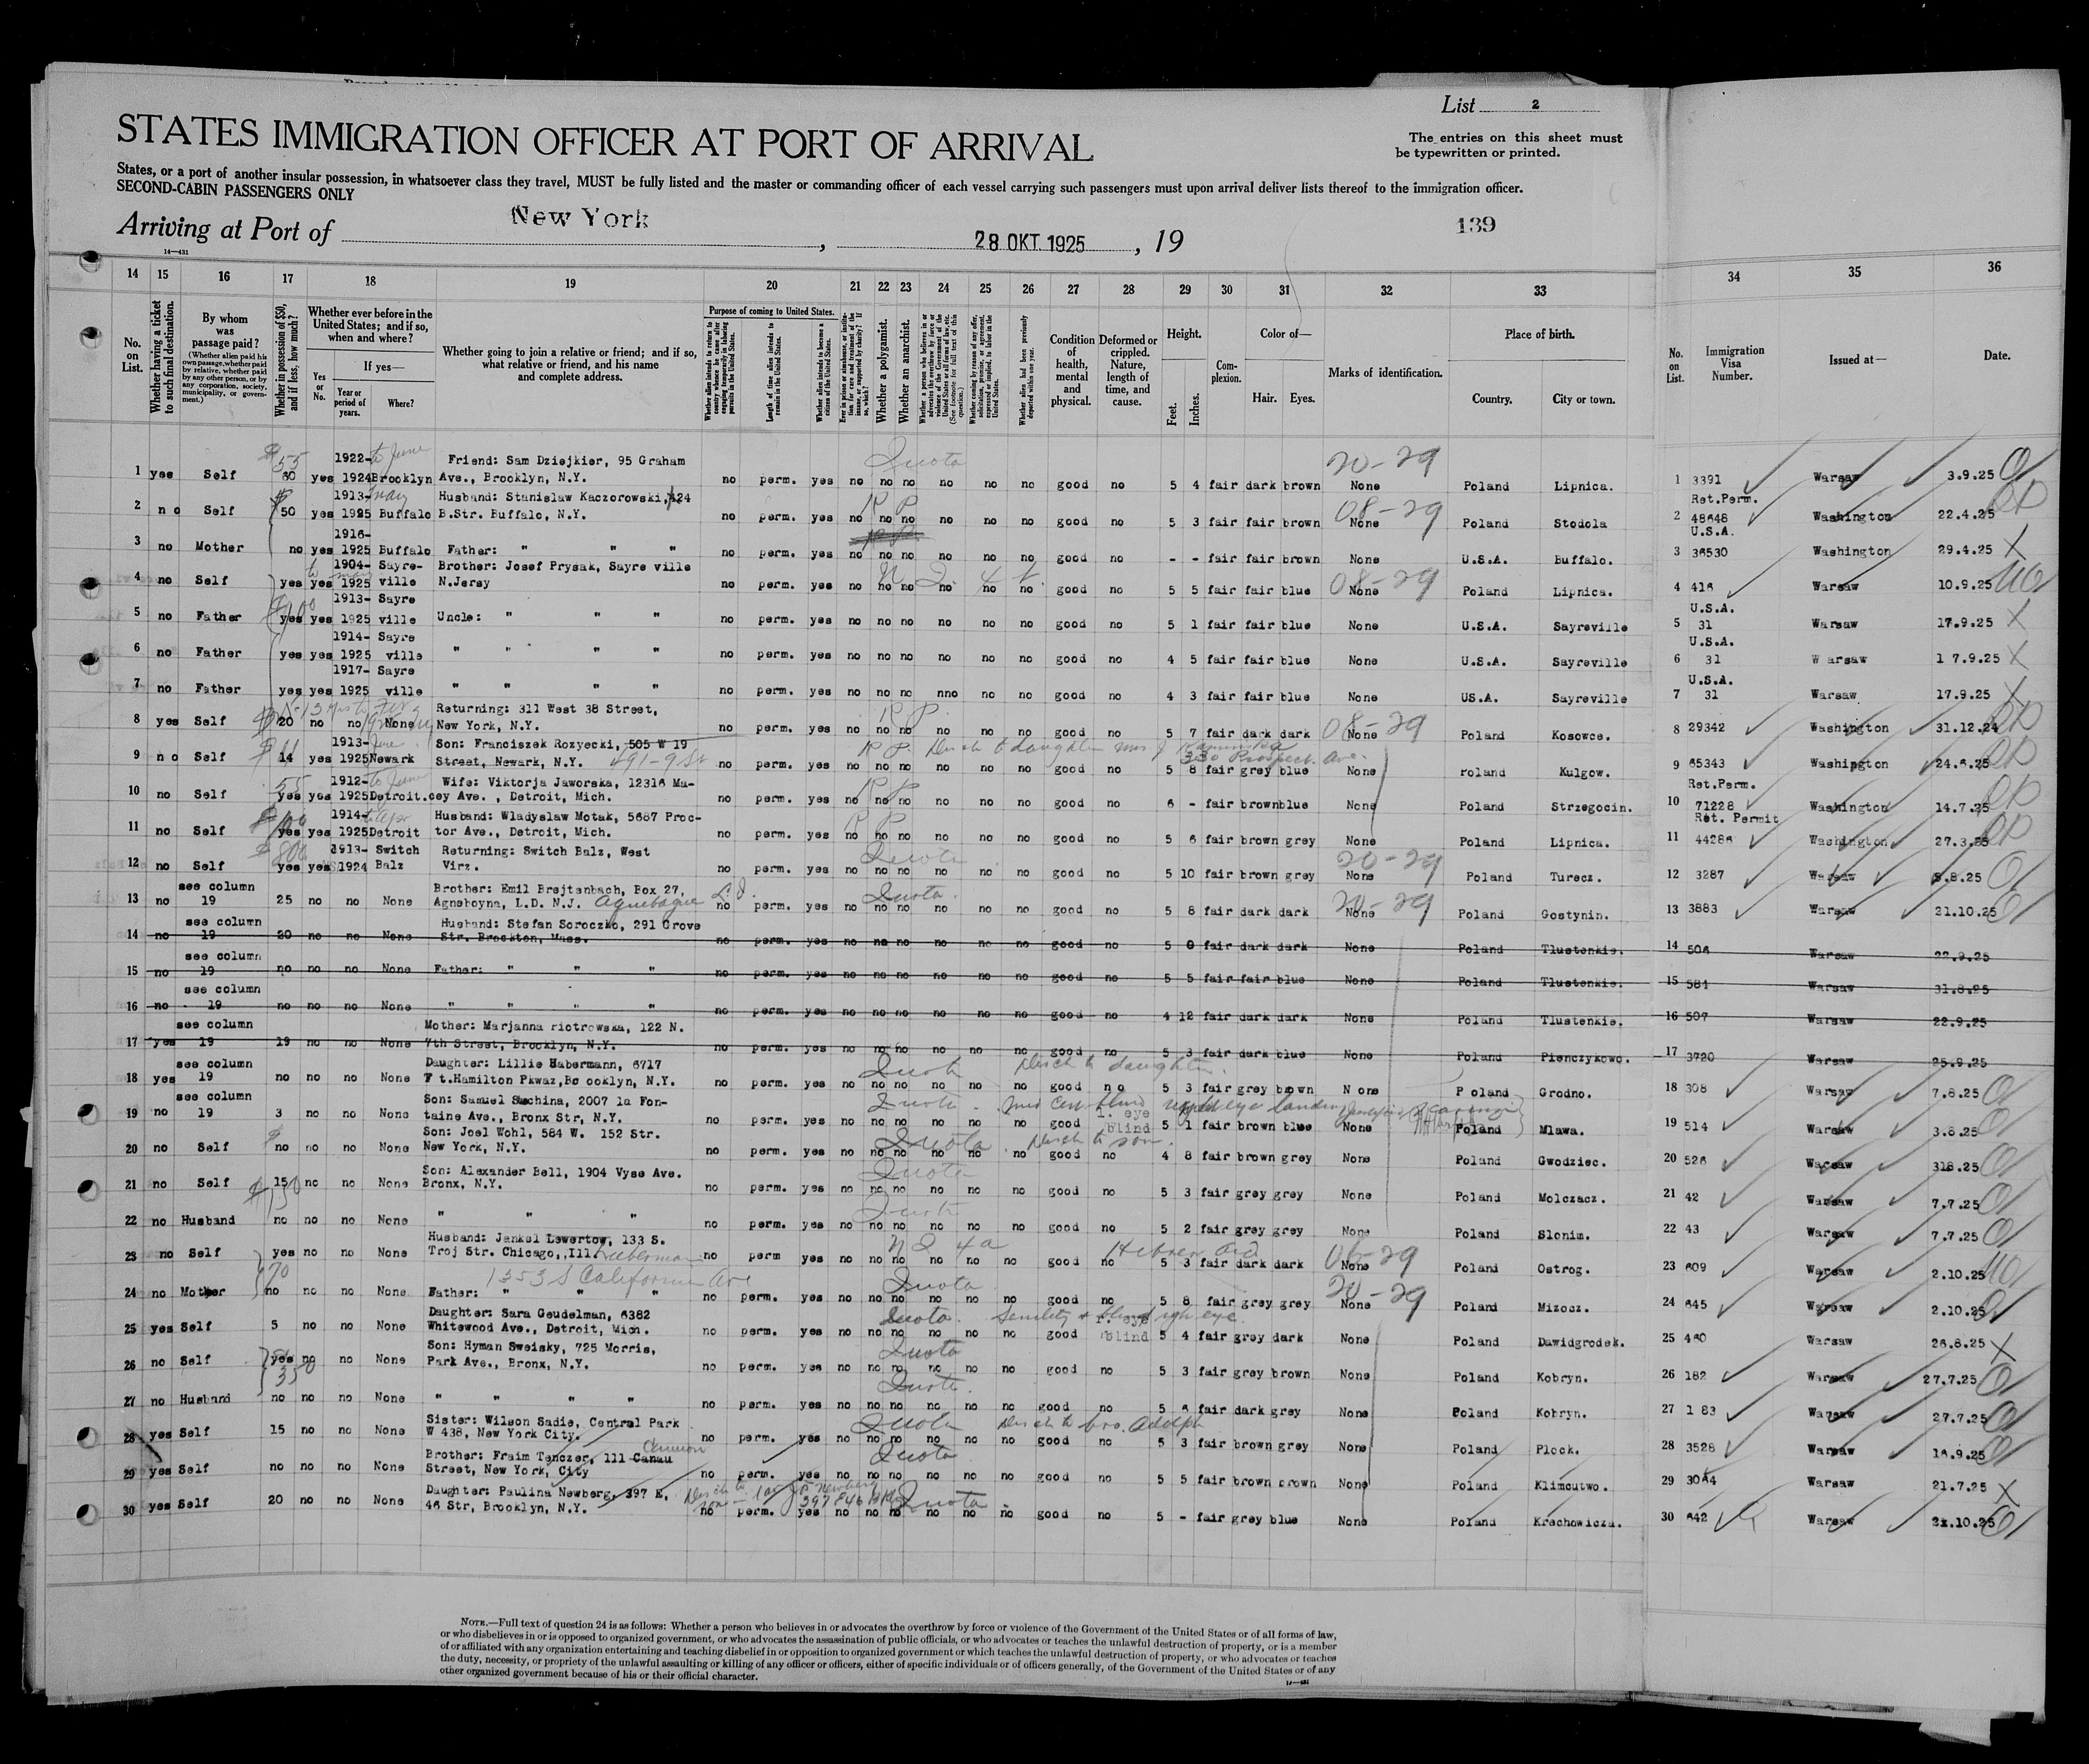 List 2
STATES IMMIGRATION OFFICER AT PORT OF ARRIVAL
The entries on this sheet must
be typewritten or printed.
States, or a port of another insular possession, in whatsoever class they travel, MUST be fully listed and the master or commanding officer of each vessel carrying such passengers must upon arrival deliver lists thereof to the immigration officer.
SECOND-CABIN PASSENGERS ONLY
Arriving at Port of New York, 28 OKT 1925, 19
139
14—431
14 15 16 17 18 19 20 21 22 23 24 25 26 27 28 29 30 31 32 33 34 35 36
No. on List.
Whether having a ticket to such final destination.
By whom was passage paid?
(Whether alien paid his own passage, whether paid by relative, whether paid by any other person, or by any corporation, society, municipality, or government.)
Whether in possession of $50, and if less, how much?
Whether ever before in the United States; and if so, when and where?
If yes—
Yes or No.
Year or period of years.
Where?
Whether going to join a relative or friend; and if so, what relative or friend, and his name and complete address.
Purpose of coming to United States.
Length of time alien intends to remain in the United States.
Whether alien intends to become a citizen of the United States.
Whether a polygamist.
Whether an anarchist.
Condition of health, mental and physical.
Deformed or crippled. Nature, length of time, and cause.
Height.
Feet. Inches.
Complexion.
Color of—
Hair. Eyes.
Marks of identification.
Place of birth.
Country. City or town.
No. on List.
Immigration Visa Number.
Issued at—
Date.
1 yes Self 55 30 yes 1922-1924 to June Brooklyn Friend: Sam Dziejkier, 95 Graham
Ave., Brooklyn, N.Y. no perm. yes no no no no no no good no 5 4 fair dark brown None Poland Lipnica. 1 3391 Warsaw 3.9.25
Quota 20-29
2 no Self 50 yes 1913-1925 May Buffalo Husband: Stanislaw Kaczorowski, 424
B.Str. Buffalo, N.Y. no perm. yes no no no no no no good no 5 3 fair fair brown None Poland Stodola 2 Ret.Perm. 48648 Washington 22.4.25
R P 08-29
3 no Mother no yes 1916-1925 Buffalo Father: " " " no perm. yes no no no no no no good no - - fair fair brown None U.S.A. Buffalo. 3 U.S.A. 36530 Washington 29.4.25
4 no Self yes yes 1904-1925 Sayre-ville Brother: Josef Prysak, Sayre ville
N.Jersy no perm. yes no no no no no no good no 5 5 fair fair blue None Poland Lipnica. 4 416 Warsaw 10.9.25
08-29
5 no Father yes yes 1913-1925 Sayre ville Uncle: " " " no perm. yes no no no no no no good no 5 1 fair fair blue None U.S.A. Sayreville 5 U.S.A. 31 Warsaw 17.9.25
6 no Father yes yes 1914-1925 Sayre ville " " " " no perm. yes no no no no no no good no 4 5 fair fair blue None U.S.A. Sayreville 6 U.S.A. 31 Warsaw 17.9.25
7 no Father yes yes 1917-1925 Sayre ville " " " " no perm. yes no no no nno no no good no 4 3 fair fair blue None US.A. Sayreville 7 U.S.A. 31 Warsaw 17.9.25
8 yes Self 20 no no None Returning: 311 West 38 Street,
New York, N.Y. no perm. yes no no no no no no good no 5 7 fair dark dark None Poland Kosowce. 8 29342 Washington 31.12.24
R P 08-29
9 no Self 14 yes 1913-1925 June Newark Son: Franciszek Rozyecki, 505 W 19
Street, Newark, N.Y. 491-9 St no perm. yes no no no no no no good no 5 8 fair grey blue None Poland Kulgow. 9 65343 Washington 24.6.25
R P. Disch to daughter Mrs. 330 Prospect Ave.
10 no Self 55 yes yes 1912-1925 to June Detroit. Wife: Viktorja Jaworska, 12316 Ma-
cey Ave. , Detroit, Mich. no perm. yes no no no no no no good no 6 - fair brown blue None Poland Strzegocin. 10 Ret.Perm. 71228 Washington 14.7.25
R P
11 no Self 100 yes yes 1914-1925 Detroit Husband: Wladyslaw Motak, 5687 Proc-
tor Ave., Detroit, Mich. no perm. yes no no no no no no good no 5 6 fair brown grey None Poland Lipnica. 11 Ret. Permit 44286 Washington 27.3.25
R P
12 no Self 800 yes yes 1913-1924 Switch Balz Returning: Switch Balz, West
Virz. no perm. yes no no no no no no good no 5 10 fair brown grey None Poland Turecz. 12 3287 Warsaw 5.8.25
Quota 20-29
13 no see column 19 25 no no None Brother: Emil Brejtenbach, Box 27,
Agneboyna, L.D. N.J. Aquebogue L.I. no perm. yes no no no no no no good no 5 8 fair dark dark None Poland Gostynin. 13 3883 Warsaw 21.10.25
Quota. 20-29
14 no see column 19 20 no no None Husband: Stefan Soroczko, 291 Grove
Str. Brockton, Mass. no perm. yes no no no no no no good no 5 0 fair dark dark None Poland Tlustenkie. 14 506 Warsaw 22.9.25
15 no see column 19 no no no None Father: " " " no perm. yes no no no no no no good no 5 5 fair fair blue None Poland Tlustenkie. 15 581 Warsaw 31.8.25
16 no see column 19 no no no None " " " " no perm. yes no no no no no no good no 4 12 fair dark dark None Poland Tlustenkie. 16 507 Warsaw 22.9.25
17 yes see column 19 19 no no None Mother: Marjanna Piotrowska, 122 N.
7th Street, Brooklyn, N.Y. no perm. yes no no no no no no good no 5 3 fair dark blue None Poland Pienczykowo. 17 3720 Warsaw 25.9.25
18 yes see column 19 no no no None Daughter: Lillie Habermann, 6717
F t.Hamilton Pkwaz,Bo ooklyn, N.Y. no perm. yes no no no no no no good no 5 3 fair grey brown None Poland Grodno. 18 308 Warsaw 7.8.25
Quota Disch to daughter.
19 no see column 19 3 no no None Son: Samuel Suchina, 2007 la Fon-
taine Ave., Bronx Str, N.Y. no perm. yes no no no no no no good l. eye blind 5 1 fair brown blue None Poland Mlawa. 19 514 Warsaw 3.8.25
Quota
20 no Self no no no None Son: Joel Wohl, 584 W. 152 Str.
New York, N.Y. no perm. yes no no no no no no good no 4 8 fair brown grey None Poland Gwodziec. 20 526 Warsaw 318.25
Quota Disch to son.
21 no Self 15 no no None Son: Alexander Bell, 1904 Vyse Ave.
Bronx, N.Y. no perm. yes no no no no no no good no 5 3 fair grey grey None Poland Molczacz. 21 42 Warsaw 7.7.25
Quota
22 no Husband no no no None " " " no perm. yes no no no no no no good no 5 2 fair grey grey None Poland Slonim. 22 43 Warsaw 7.7.25
Quota
23 no Self yes no no None Husband: Jankel Lewertow, 133 S.
Troj Str. Chicago,,Ill. Lieberman no perm yes no no no no no no good no 5 3 fair dark dark None Poland Ostrog. 23 609 Warsaw 2.10.25
1353 S California Ave
N Q 4a Hebrew aid 06-29
24 no Mother no no no None Father: " " " no perm. yes no no no no no no good no 5 8 fair grey grey None Poland Mizocz. 24 645 Warsaw 2.10.25
Quota 20-29
25 yes Self 5 no no None Daughter: Sara Geudelman, 6382
Whitewood Ave., Detroit, Mich. no perm. yes no no no no no no good r. eye blind 5 4 fair grey dark None Poland Dawidgrodek. 25 460 Warsaw 26.8.25
Quota. Senility & blind rgh eye.
26 no Self yes no no None Son: Hyman Sweisky, 725 Morris,
Park Ave., Bronx, N.Y. no perm. yes no no no no no no good no 5 3 fair grey brown None Poland Kobryn. 26 182 Warsaw 27.7.25
350 Quota
27 no Husband no no no None " " " " no perm. yes no no no no no no good no 5 6 fair dark grey None Poland Kobryn. 27 1 83 Warsaw 27.7.25
Quota.
28 yes Self 15 no no None Sister: Wilson Sadie, Central Park
W 438, New York City. no perm. yes no no no no no no good no 5 3 fair brown grey None Poland Plock. 28 3528 Warsaw 16.9.25
Quota Disch to bro. Adolph
29 yes Self no no no None Brother: Fraim Tenczer, 111 Canau Cannon
Street, New York, City no perm. yes no no no no no no good no 5 5 fair brown brown None Poland Klimcutwo. 29 3064 Warsaw 21.7.25
Quota
30 yes Self 20 no no None Daughter: Paulina Newberg, 397 E,
46 Str, Brooklyn, N.Y. no perm. yes no no no no no no good no 5 - fair grey blue None Poland Krechowicza. 30 642 Warsaw 21.10.25
Quota
NOTE.—Full text of question 24 is as follows: Whether a person who believes in or advocates the overthrow by force or violence of the Government of the United States or of all forms of law,
or who disbelieves in or is opposed to organized government, or who advocates the assassination of public officials, or who advocates or teaches the unlawful destruction of property, or is a member
of or affiliated with any organization entertaining and teaching disbelief in or opposition to organized government or which teaches the unlawful destruction of property, or who advocates or teaches
the duty, necessity, or propriety of the unlawful assaulting or killing of any officer or officers, either of specific individuals or of officers generally, of the Government of the United States or of any
other organized government because of his or their official character.